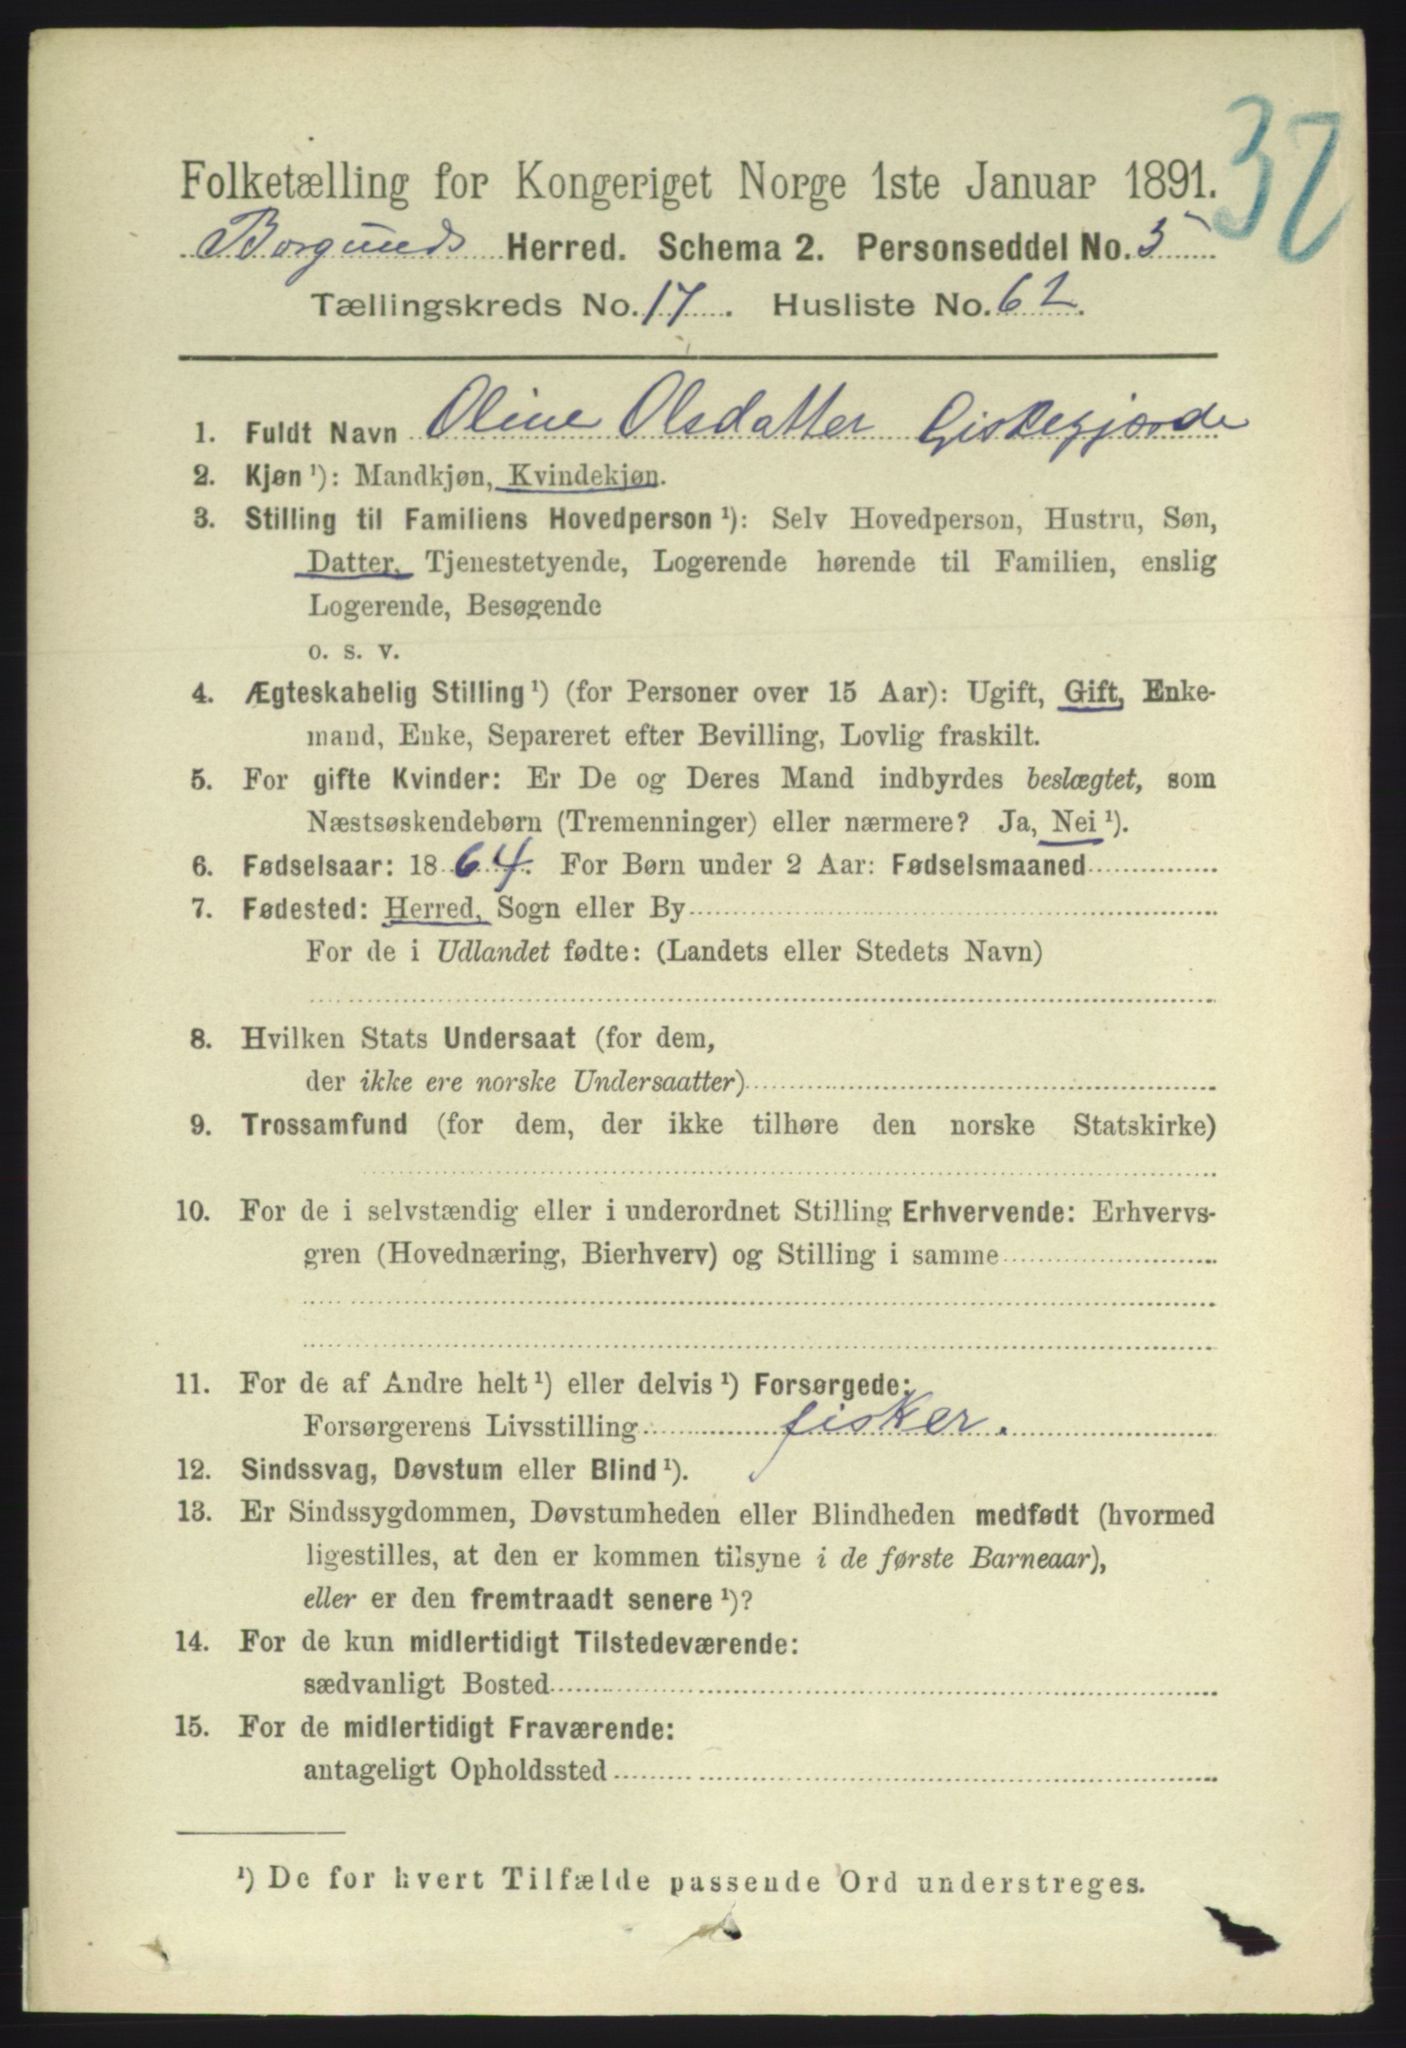 32
Folketælling for Kongeriget Norge 1ste Januar 1891.
Borgunds Herred. Schema 2. Personseddel No. 5
Tællingskreds No. 17. Husliste No. 62.
1. Fuldt Navn Oline Olsdatter Giskegjærde
2. Kjøn ¹): Mandkjøn, Kvindekjøn.
3. Stilling til Familiens Hovedperson ¹): Selv Hovedperson, Hustru, Søn,
Datter, Tjenestetyende, Logerende hørende til Familien, enslig
Logerende, Besøgende
o. s. v.
4. Ægteskabelig Stilling ¹) (for Personer over 15 Aar): Ugift, Gift, Enke-
mand, Enke, Separeret efter Bevilling, Lovlig fraskilt.
5. For gifte Kvinder: Er De og Deres Mand indbyrdes beslægtet, som
Næstsøskendebørn (Tremenninger) eller nærmere? Ja, Nei ¹).
6. Fødselsaar: 1864. For Børn under 2 Aar: Fødselsmaaned
7. Fødested: Herred, Sogn eller By
For de i Udlandet fødte: (Landets eller Stedets Navn)
8. Hvilken Stats Undersaat (for dem,
der ikke ere norske Undersaatter)
9. Trossamfund (for dem, der ikke tilhøre den norske Statskirke)
10. For de i selvstændig eller i underordnet Stilling Erhvervende: Erhvervs-
gren (Hovednæring, Bierhverv) og Stilling i samme
11. For de af Andre helt ¹) eller delvis ¹) Forsørgede:
Forsørgerens Livsstilling fisker.
12. Sindssvag, Døvstum eller Blind ¹).
13. Er Sindssygdommen, Døvstumheden eller Blindheden medfødt (hvormed
ligestilles, at den er kommen tilsyne i de første Barneaar),
eller er den fremtraadt senere ¹)?
14. For de kun midlertidigt Tilstedeværende:
sædvanligt Bosted
15. For de midlertidigt Fraværende:
antageligt Opholdssted
¹) De for hvert Tilfælde passende Ord understreges.